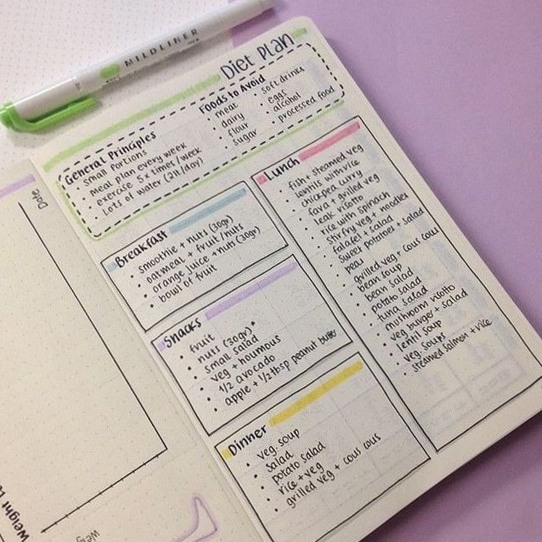 MILDLINER
Diet Plan
General Principles
• Small portions
• Meal plan every week
• exercise 5x times/week
• Lots of water (2lt/day)
Foods to Avoid
• meat
• dairy
• flour
• sugar
• soft drinks
• eggs
• alcohol
• processed food
Breakfast
• smoothie + nuts (30gr)
• oatmeal + fruit/nuts
• orange juice + nuts (30gr)
• bowl of fruit
Snacks
• fruit
• nuts (30gr)*
• small salad
• veg + houmous
• 1/2 avocado
• apple + 1/2 tbsp peanut butter
Dinner
• veg. soup
• salad
• potato salad
• rice + veg
• grilled veg + cous cous
Lunch
• fish + steamed veg
• lentils with rice
• chickpea curry
• fava + grilled veg
• leak risotto
• rice with spinach
• stir fry veg + noodles
• falafel + salad
• sweet potatoes + salad
• peas
• grilled veg + cous cous
• bean soup
• bean salad
• potato salad
• tuna salad
• mushroom risotto
• veg burger + salad
• lentil soup
• veg. soups
• steamed salmon + rice
Date
Weight